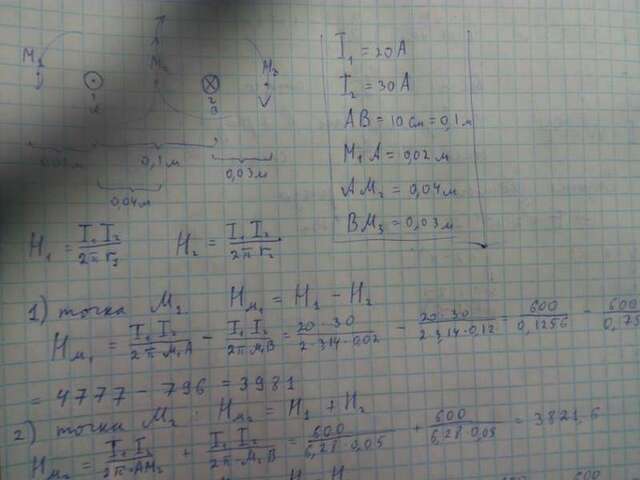 M₁ M₂ M₃
1 2
A B
0,1м 0,03м
0,04м
I₁ = 20 A
I₂ = 30 A
AB = 10 см = 0,1 м
M₁A = 0,02 м
AM₂ = 0,04 м
BM₃ = 0,03 м
H₁ = I₁ I₂ / 2π r₁ H₂ = I₁ I₂ / 2π r₂
1) точка M₁ H_M₁ = H₁ − H₂
H_M₁ = I₁ I₂ / 2π·M₁A − I₁ I₂ / 2π·M₁B = 20·30 / 2·3,14·0,02 − 20·30 / 2·3,14·0,12 = 600 / 0,1256 − 600
= 4777 − 796 = 3981
2) точка M₂: H_M₂ = H₁ + H₂
H_M₂ = I₁ I₂ / 2π·AM₂ + I₁ I₂ / 2π·M₂B = 600 / 6,28·0,05 + 600 / 6,28 = 3821,6